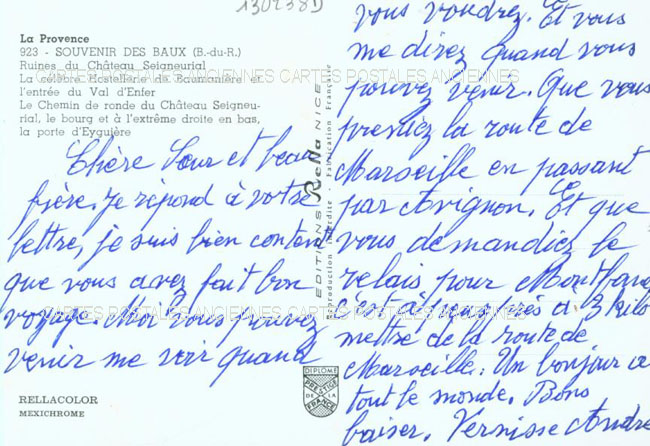 130238D
La Provence
923 - SOUVENIR DES BAUX (B.-du-R.)
Ruines du Château Seigneurial
La célèbre Hostellerie de Baumanière et
l'entrée du Val d'Enfer
Le Chemin de ronde du Château Seigneu-
rial, le bourg et à l'extrême droite en bas,
la porte d'Eyguière
Chère Sœur et beau
frère. Je répond à votre
lettre, je suis bien content
que vous avez fait bon
voyage. Moi vous pouvez
venir me voir quand
vous voudrez. Et vous
me direz quand vous
pouvez venir. Que vous
prestiez la route de
Marseille en passant
par Avignon. Et que
vous demandiez le
relais pour
c'est à peu près a 3 kilo
mettre de la route de
Marseille. Un bonjour a
tout le monde. Bons
baiser. Vernisse André
EDITIONS Rella NICE
Reproduction Interdite - Fabrication Française
RELLACOLOR
MEXICHROME
DIPLOME
PRESTIGE
DE LA
FRANCE
CARTES POSTALES ANCIENNES CARTES POSTALES ANCIENNES
CARTES POSTALES ANCIENNES CARTES POSTALES ANCIENNES